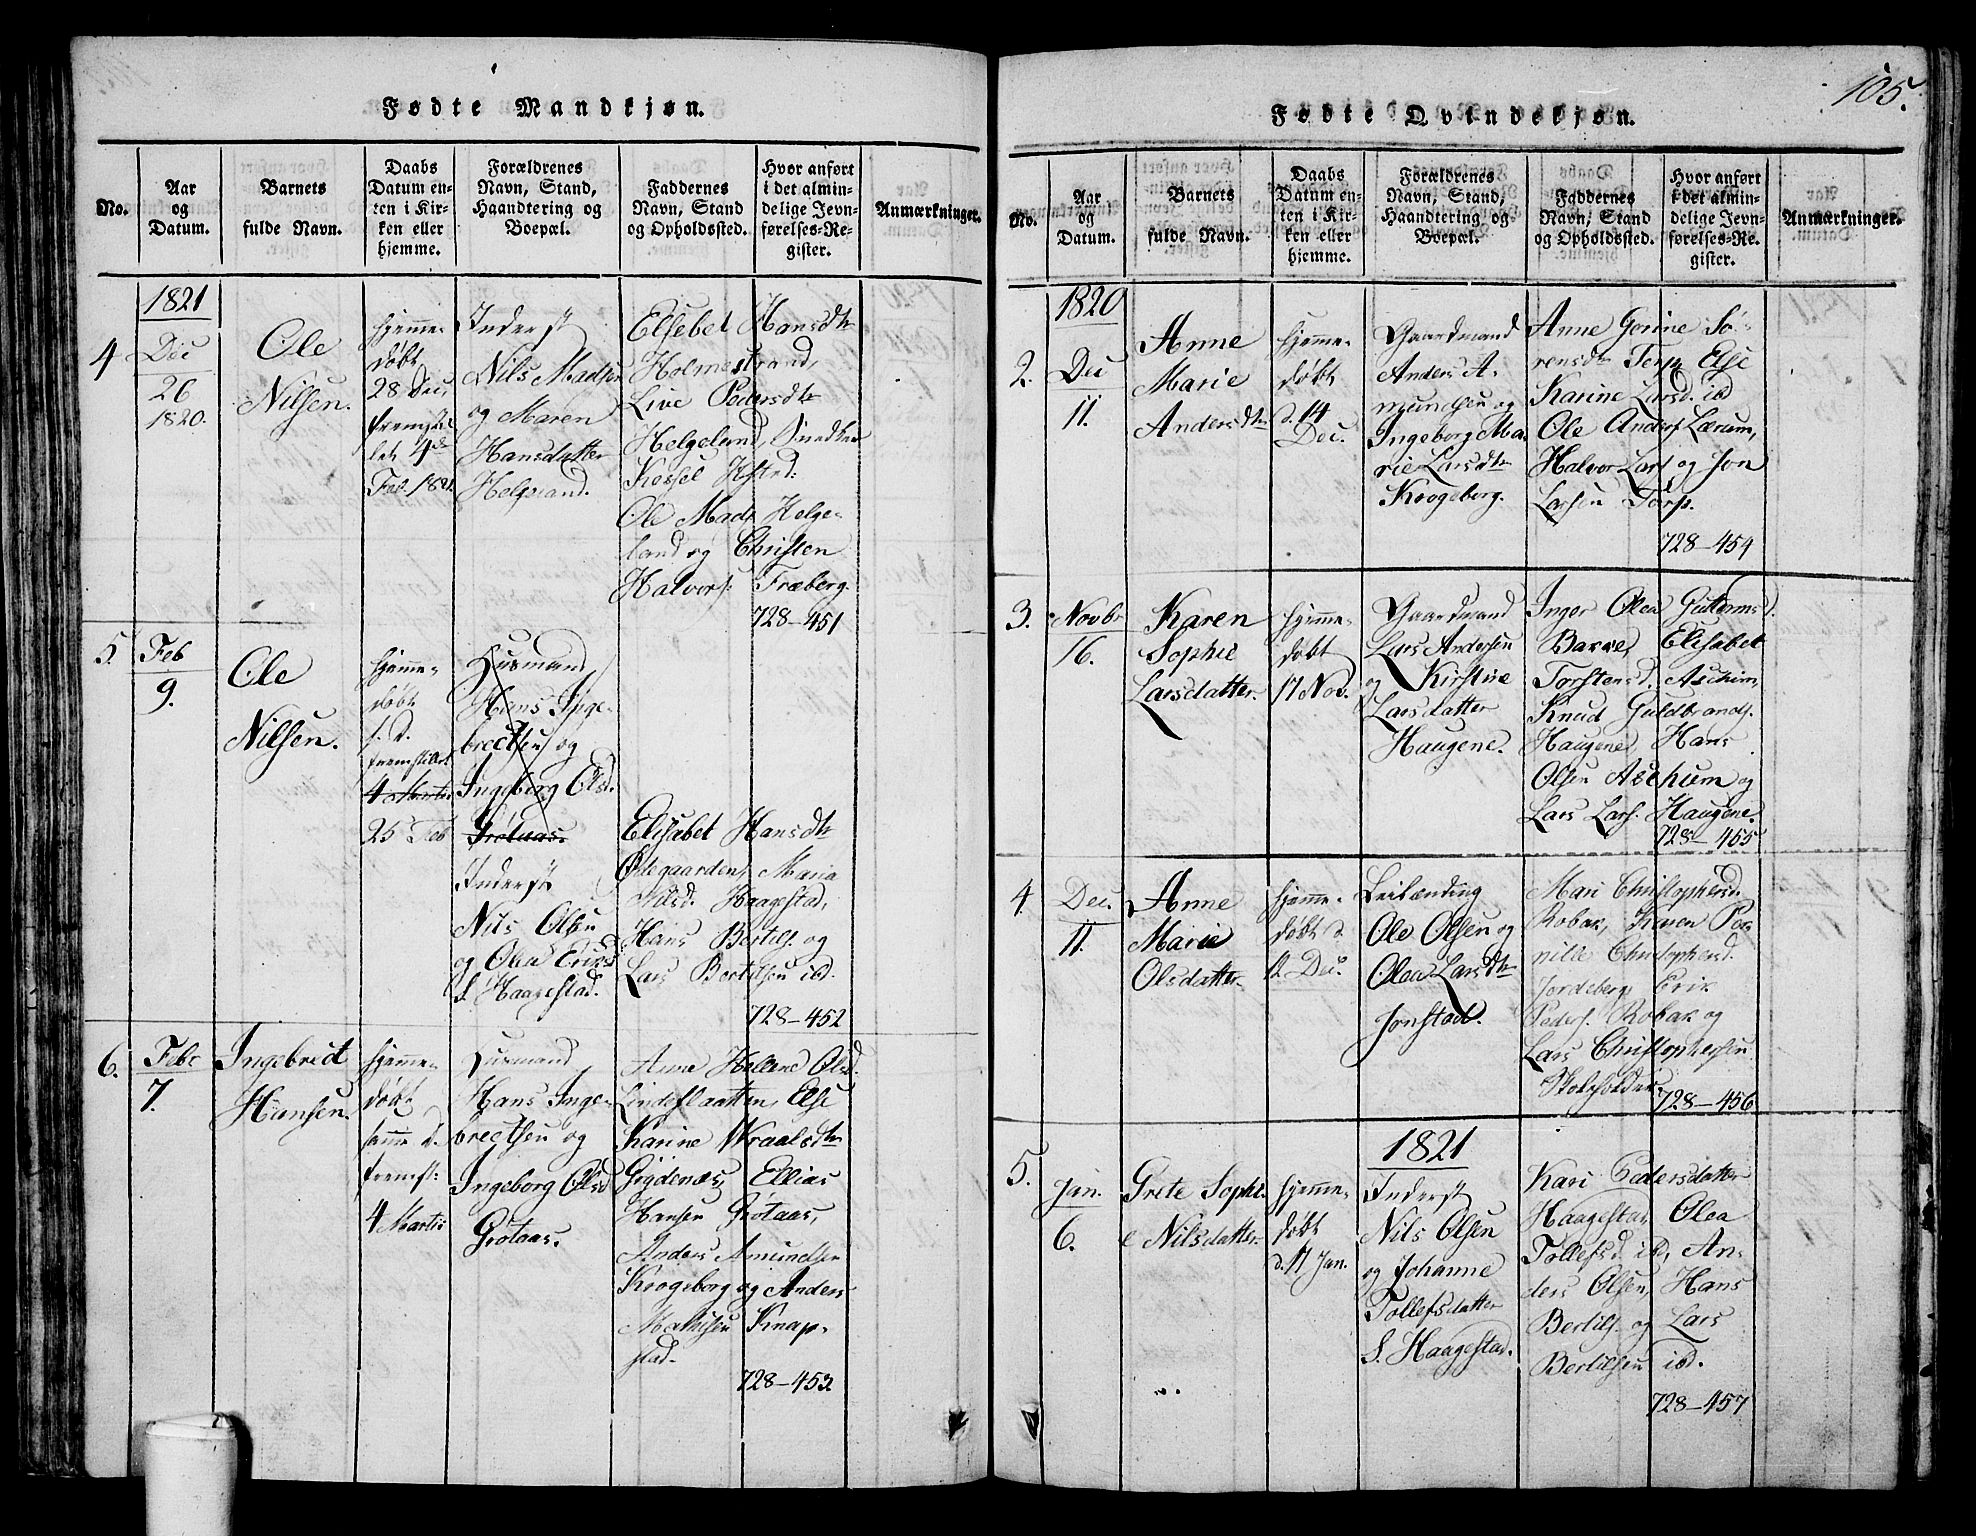 Fødte Mandkjøn.
No.
Aar
og
Datum.
Barnets
fulde Navn.
Daabs
Datum en-
ten i Kir-
ken eller
hjemme.
Forældrenes
Navn, Stand,
Haandtering og
Boepæl.
Faddernes
Navn, Stand
og Opholdssted.
Hvor anført
i det almin-
delige Jevn-
førelses-Re-
gister.
Anmærkninger.
4
1821
Dec
26
1820.
Ole
Nilsen.
hjemme-
døbt
28 Dec,
fremstil
let 4de
Feb. 1821.
Inderst
Nils Madsen
og Maren
Hansdatter
Helgeland.
Elsebet Hansdtr
Holmestrand,
Live Pedersdtr
Helgeland, Snedker
Ole Mads. Helge-
land og Christen
Halvors. Fræberg.
728-451
5.
Feb
9.
Ole
Nilsen.
hjemme-
døbt
s. d.
fremstillet
4 Martii
25 Feb
Husmand
Hans Inge-
brectsen og
Ingeborg Olsd.
Grøtaas.
Inderst
Nils Olsen
og Olea Eriksd
S. Haagestad.
Elisabet Hansdtr
Ødegaarden, Maria
Nilsd. Haagestad,
Hans Bertils. og
Lars Bertilsen ibd.
728-452
6.
Febr
7.
Ingebrect
Hansen
hjemme-
døbt
samme d.
fremst:
4 Martii
Husmand
Hans Inge-
brectsen og
Ingeborg Olsd
Grøtaas.
Anne Hellene Olsd.
Lindeflaatten, Else
Karine Wraalsdtr
Gigdenæs, Ellias
Hansen Grøtaas,
Anders Amundsen
Krogeborg og Anders
Mathisen Knap-
stad.
728-453
105.
Fødte Qvindekjøn.
No.
Aar
og
Datum.
Barnets
fulde Navn.
Daabs
Datum en-
ten i Kir-
ken eller
hjemme.
Forældrenes
Navn, Stand,
Haandtering og
Boepæl.
Faddernes
Navn, Stand
og Opholdssted.
Hvor anført
i det almin-
delige Jevn-
førelses-Re-
gister.
Anmærkninger.
2.
1820
Dec
11.
Anne
Marie
Andersdtr
hjemme-
døbt
d. 14
Dec.
Gaardmand
Anders A-
mundsen og
Ingeborg Ma-
rie Larsdtr
Krogeborg.
Anne Gorine Sø-
rensdtr Torp, Else
Karine Larsd. ibd
Ole Anders Lærum,
Halvor Lars og Jon
Larsen Torp.
728-454
3.
Novbr
16.
Karen
Sophie
Larsdatter.
hjemme-
døbt
17 Nov.
Gaardmand
Lars Andersen
og Kirstine
Larsdatter
Haugene.
Inger Olea Guttormsd.
Barre, Elisabet
Torstensd. Aschim,
Knud Guldbrands.
Haugene, Hans
Olsen Aschum og
Lars Lars. Haugene.
728-455
4.
Dec.
11.
Anne
Marie
Olsdatter.
hjemme-
døbt d.
12 Dec.
Leilænding
Ole Olsen og
Olea Larsdtr
Jonstad.
Mari Christophersd.
Robak, Karen Per-
nille Christophersd.
Jordeberg, Erik
Peders. Robak og
Lars Christophersen
Skoleholder.
728-456
5.
1821
Jan.
6.
Grete Sophi-
e Nilsdatter.
hjemme-
døbt
d. 11 Jan.
Inderst
Nils Olsen
og Johanne
Tollefsdatter
S. Haagestad.
Kari Pedersdatter
Haagestad, Olea
Tollefsd. ibd, An-
ders Olsen, Hans
Bertils. og Lars
Bertilsen ibd.
728-457